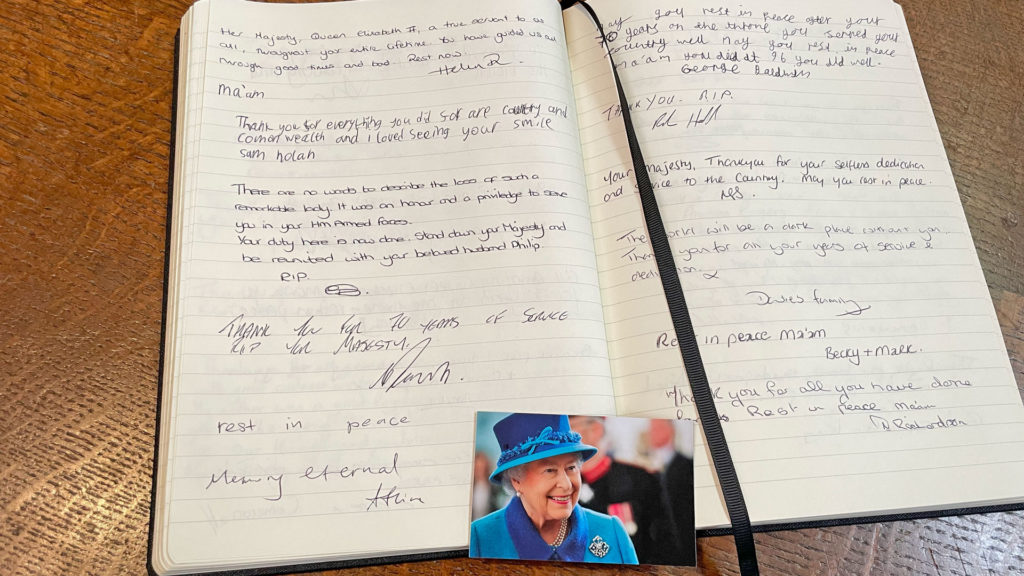 Her Majesty, Queen Elizabeth II, a true servant to us
all, throughout your entire lifetime. You have guided us all
through good times and bad. Rest now.
Helen R.
Ma'am
Thank you for everything you did for are country and
Comonwealth and I loved seeing your smile
Sam nolan
There are no words to describe the loss of such a
remarkable lady. It was an honour and a priviledge to serve
you in your Hm Armed Forces.
Your duty here is now done. Stand down your Majesty and
be reunited with your beloved husband Philip.
R.I.P.
THANK YOU FOR 70 YEARS OF SERVICE
RIP YOUR MAJESTY.
rest in peace
Memory eternal
May you rest in peace after your
70 years on the throne you served your
country well may you rest in peace
ma'am you died at 96 you did well.
George Baldwin
THANK YOU. R.I.P.
Your Majesty, Thankyou for your selfless dedication
and service to the Country. May you rest in peace.
The world will be a dark place without you...
Thank you for all your years of service &
dedication. x
Davies family
Rest in peace Ma'am
Becky + Mark.
Thank you for all you have done
Rest in peace Ma'am
N Richardson